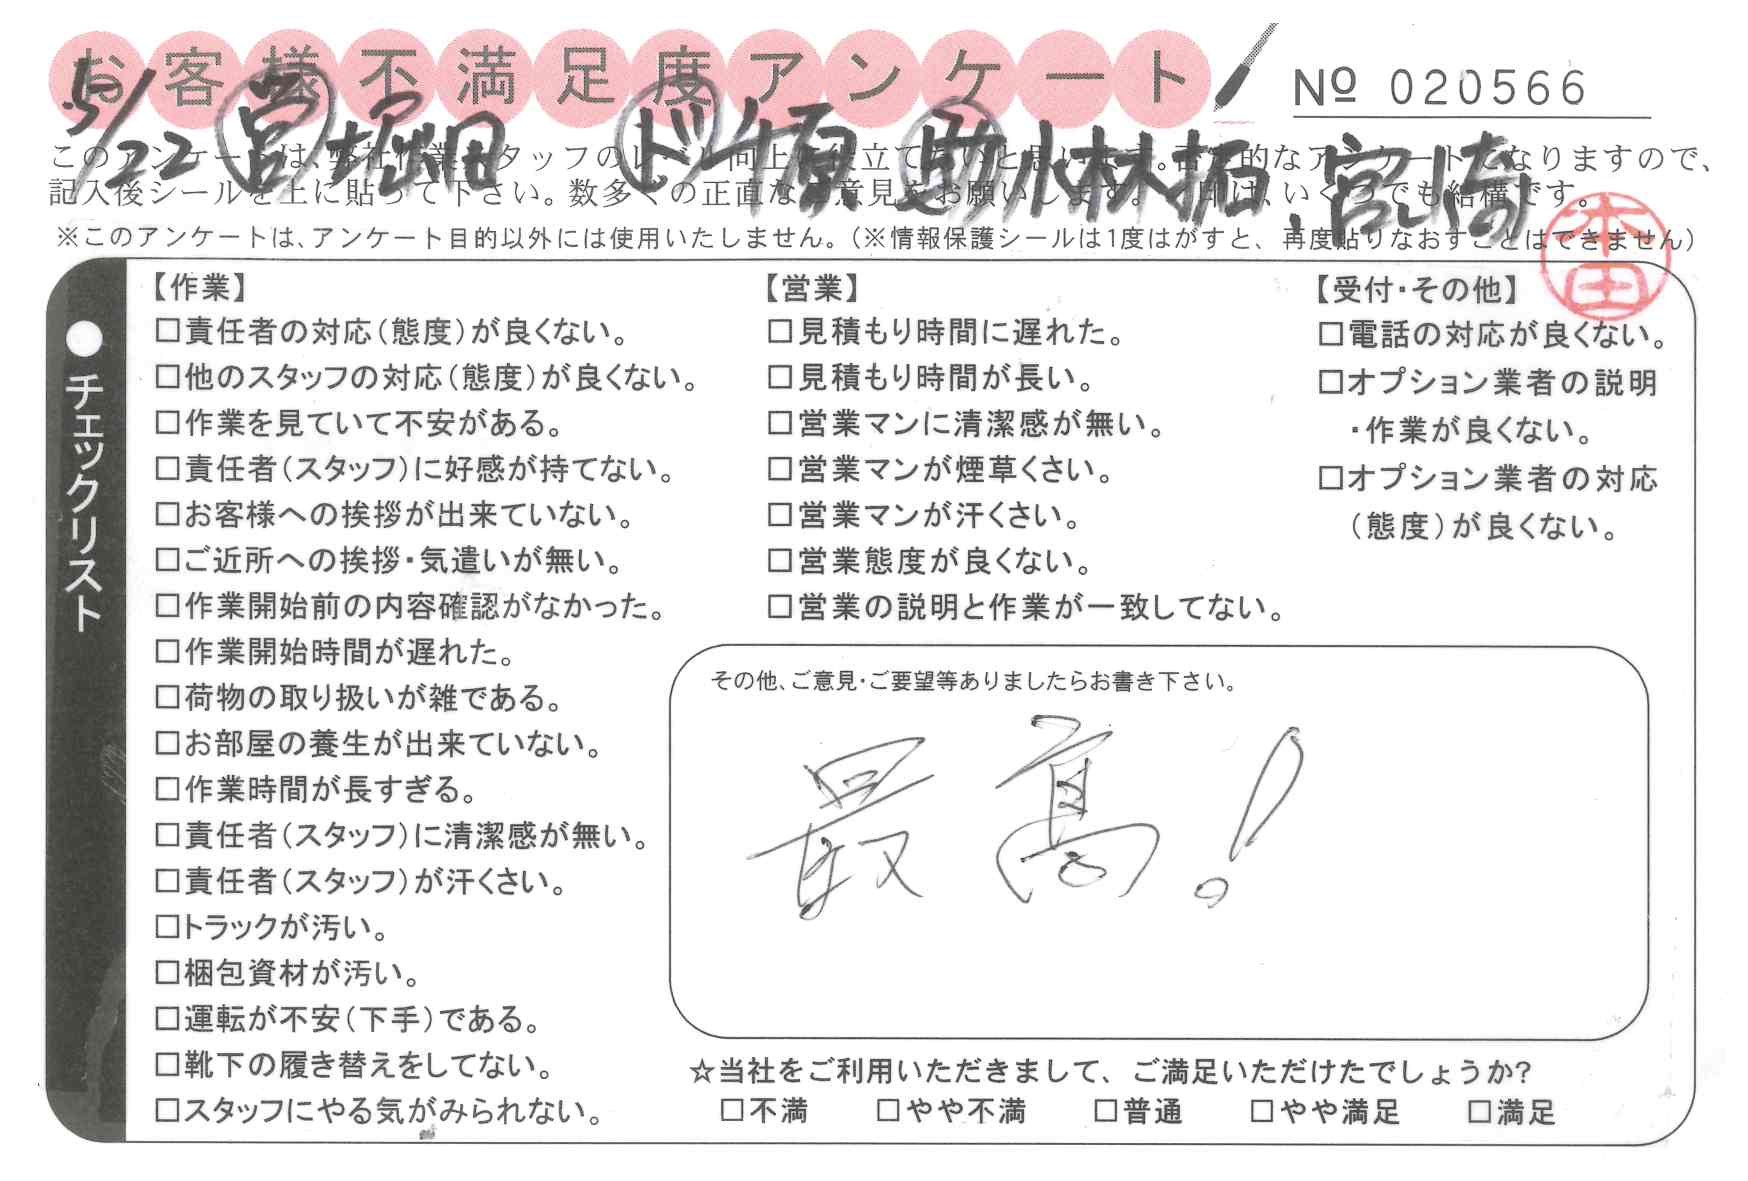 お客様不満足度アンケート
№ 020566
5/22 営 堀田 ド 原 助 小林拓、宮崎
このアンケートは、弊社作業スタッフのレベル向上に役立てたいと思います。否定的なアンケートになりますので、
記入後シールを上に貼って下さい。数多くの正直なご意見をお願いします。 印は、いくつでも結構です。
※このアンケートは、アンケート目的以外には使用いたしません。(※情報保護シールは1度はがすと、再度貼りなおすことはできません)
本田
チェックリスト
【作業】
□責任者の対応(態度)が良くない。
□他のスタッフの対応(態度)が良くない。
□作業を見ていて不安がある。
□責任者(スタッフ)に好感が持てない。
□お客様への挨拶が出来ていない。
□ご近所への挨拶・気遣いが無い。
□作業開始前の内容確認がなかった。
□作業開始時間が遅れた。
□荷物の取り扱いが雑である。
□お部屋の養生が出来ていない。
□作業時間が長すぎる。
□責任者(スタッフ)に清潔感が無い。
□責任者(スタッフ)が汗くさい。
□トラックが汚い。
□梱包資材が汚い。
□運転が不安(下手)である。
□靴下の履き替えをしてない。
□スタッフにやる気がみられない。
【営業】
□見積もり時間に遅れた。
□見積もり時間が長い。
□営業マンに清潔感が無い。
□営業マンが煙草くさい。
□営業マンが汗くさい。
□営業態度が良くない。
□営業の説明と作業が一致してない。
【受付・その他】
□電話の対応が良くない。
□オプション業者の説明
・作業が良くない。
□オプション業者の対応
(態度)が良くない。
その他、ご意見・ご要望等ありましたらお書き下さい。
最高!
☆当社をご利用いただきまして、ご満足いただけたでしょうか?
□不満 □やや不満 □普通 □やや満足 □満足